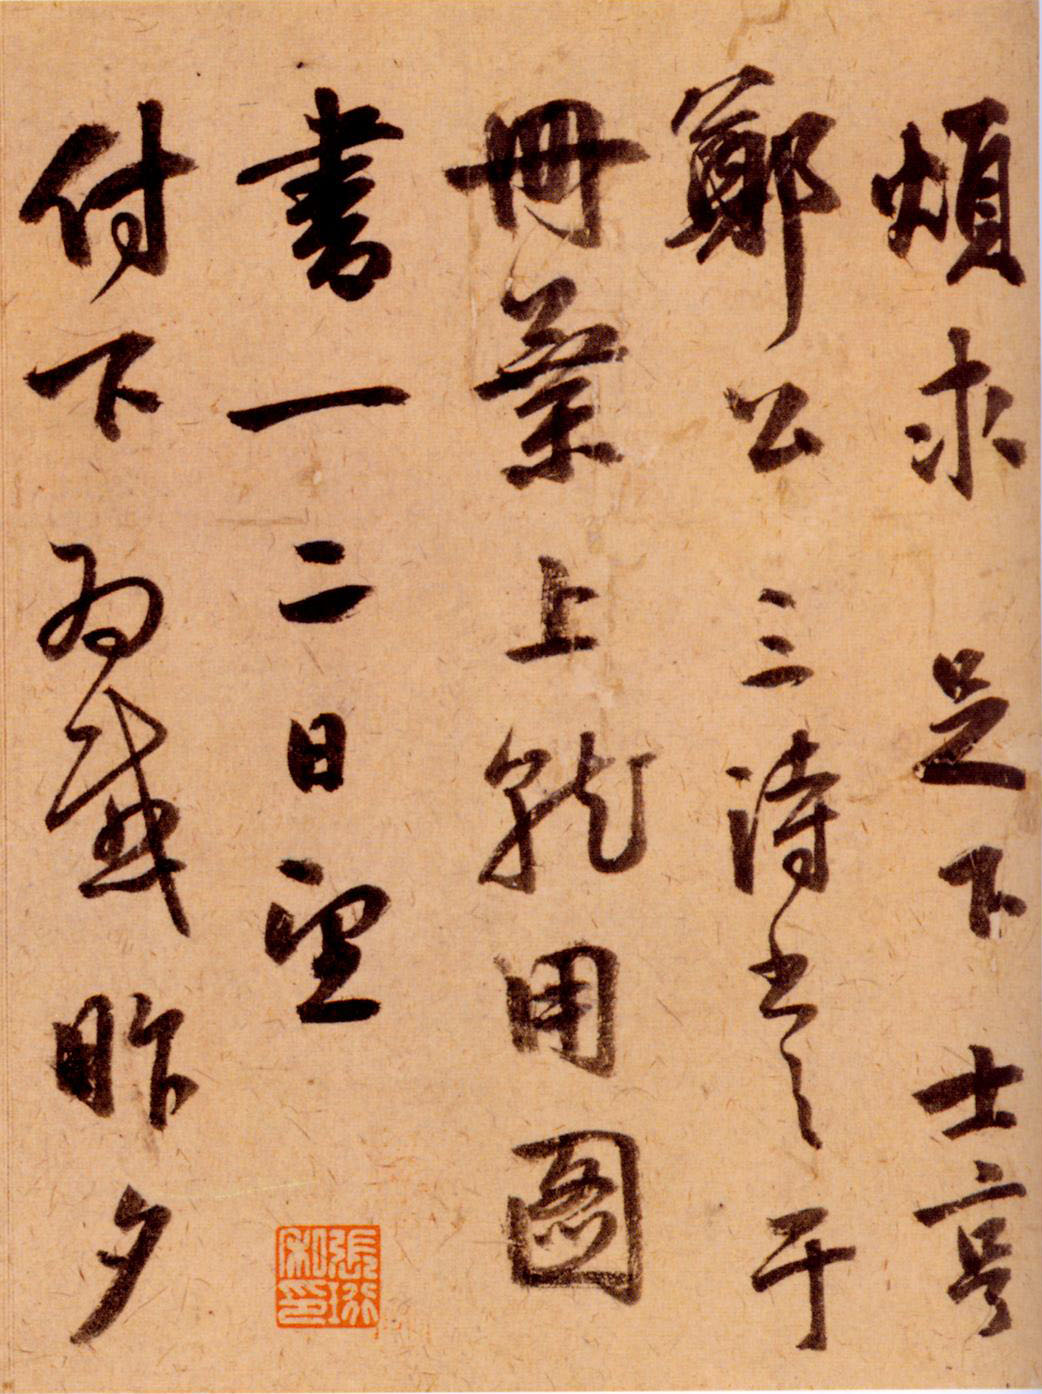 煩求 足下 士亨
鄭公三詩書之于
冊葉上就用圖
書一二日望
付下為感昨夕
張珩私印